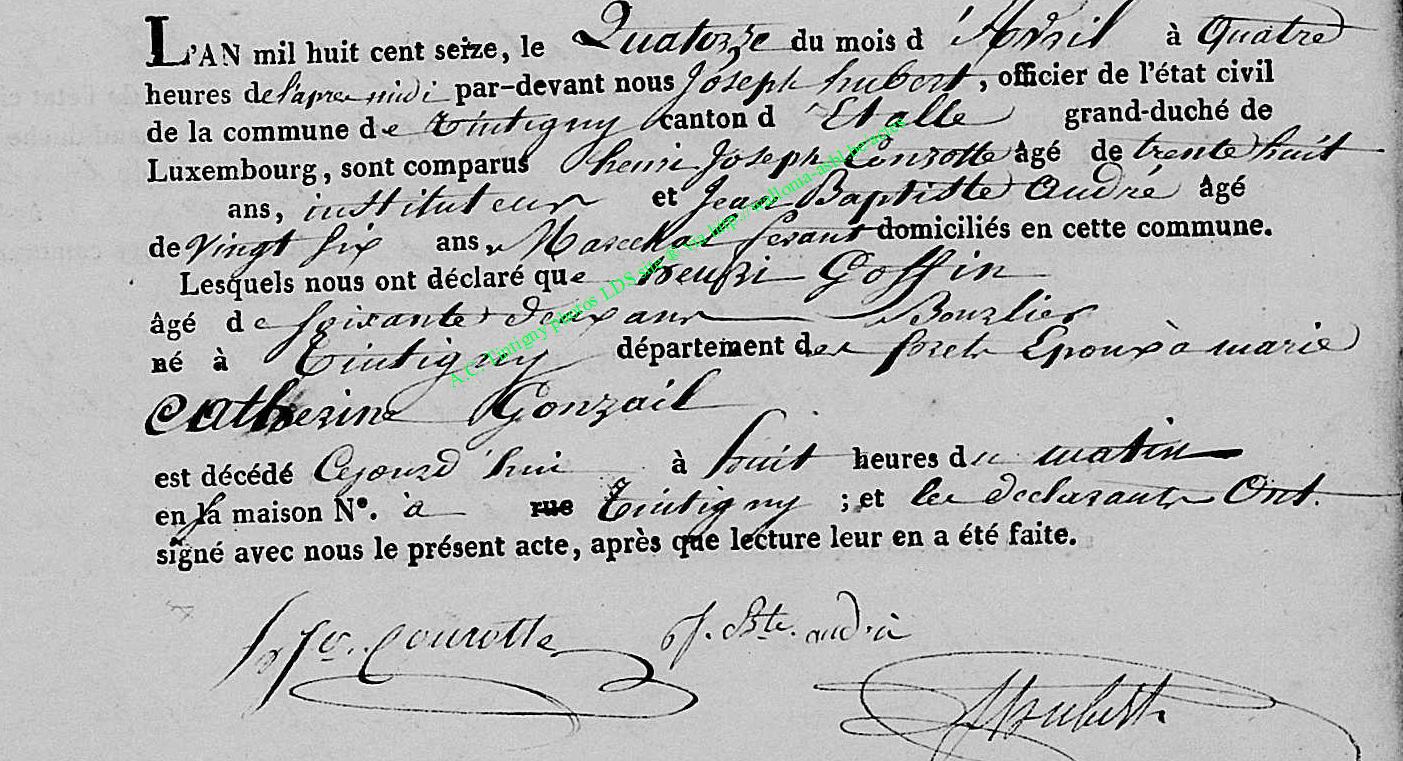 L'AN mil huit cent seize, le Quatorze du mois d'Avril à Quatre
heures de l'apres midi par-devant nous Joseph hubert, officier de l'état civil
de la commune de Tintigny canton d'Etalle grand-duché de
Luxembourg, sont comparus henri Joseph Courotte âgé de trente huit
ans, instituteur et Jean Baptiste André âgé
de Vingt six ans, Marechal ferant domiciliés en cette commune.
Lesquels nous ont déclaré que henri Goffin
âgé de soixante deux ans
né à Tintigny département des foret Epoux à marie
Catherine Gonzail
est décédé Cejourd'hui à huit heures du matin
en la maison N°. à rue Tintigny ; et les declarants Ont
signé avec nous le présent acte, après que lecture leur en a été faite.
courotte J. Bte. andré
Hubert
A.C. Tintigny photos LDS site @ via http://wallonia-asbl.be/actes